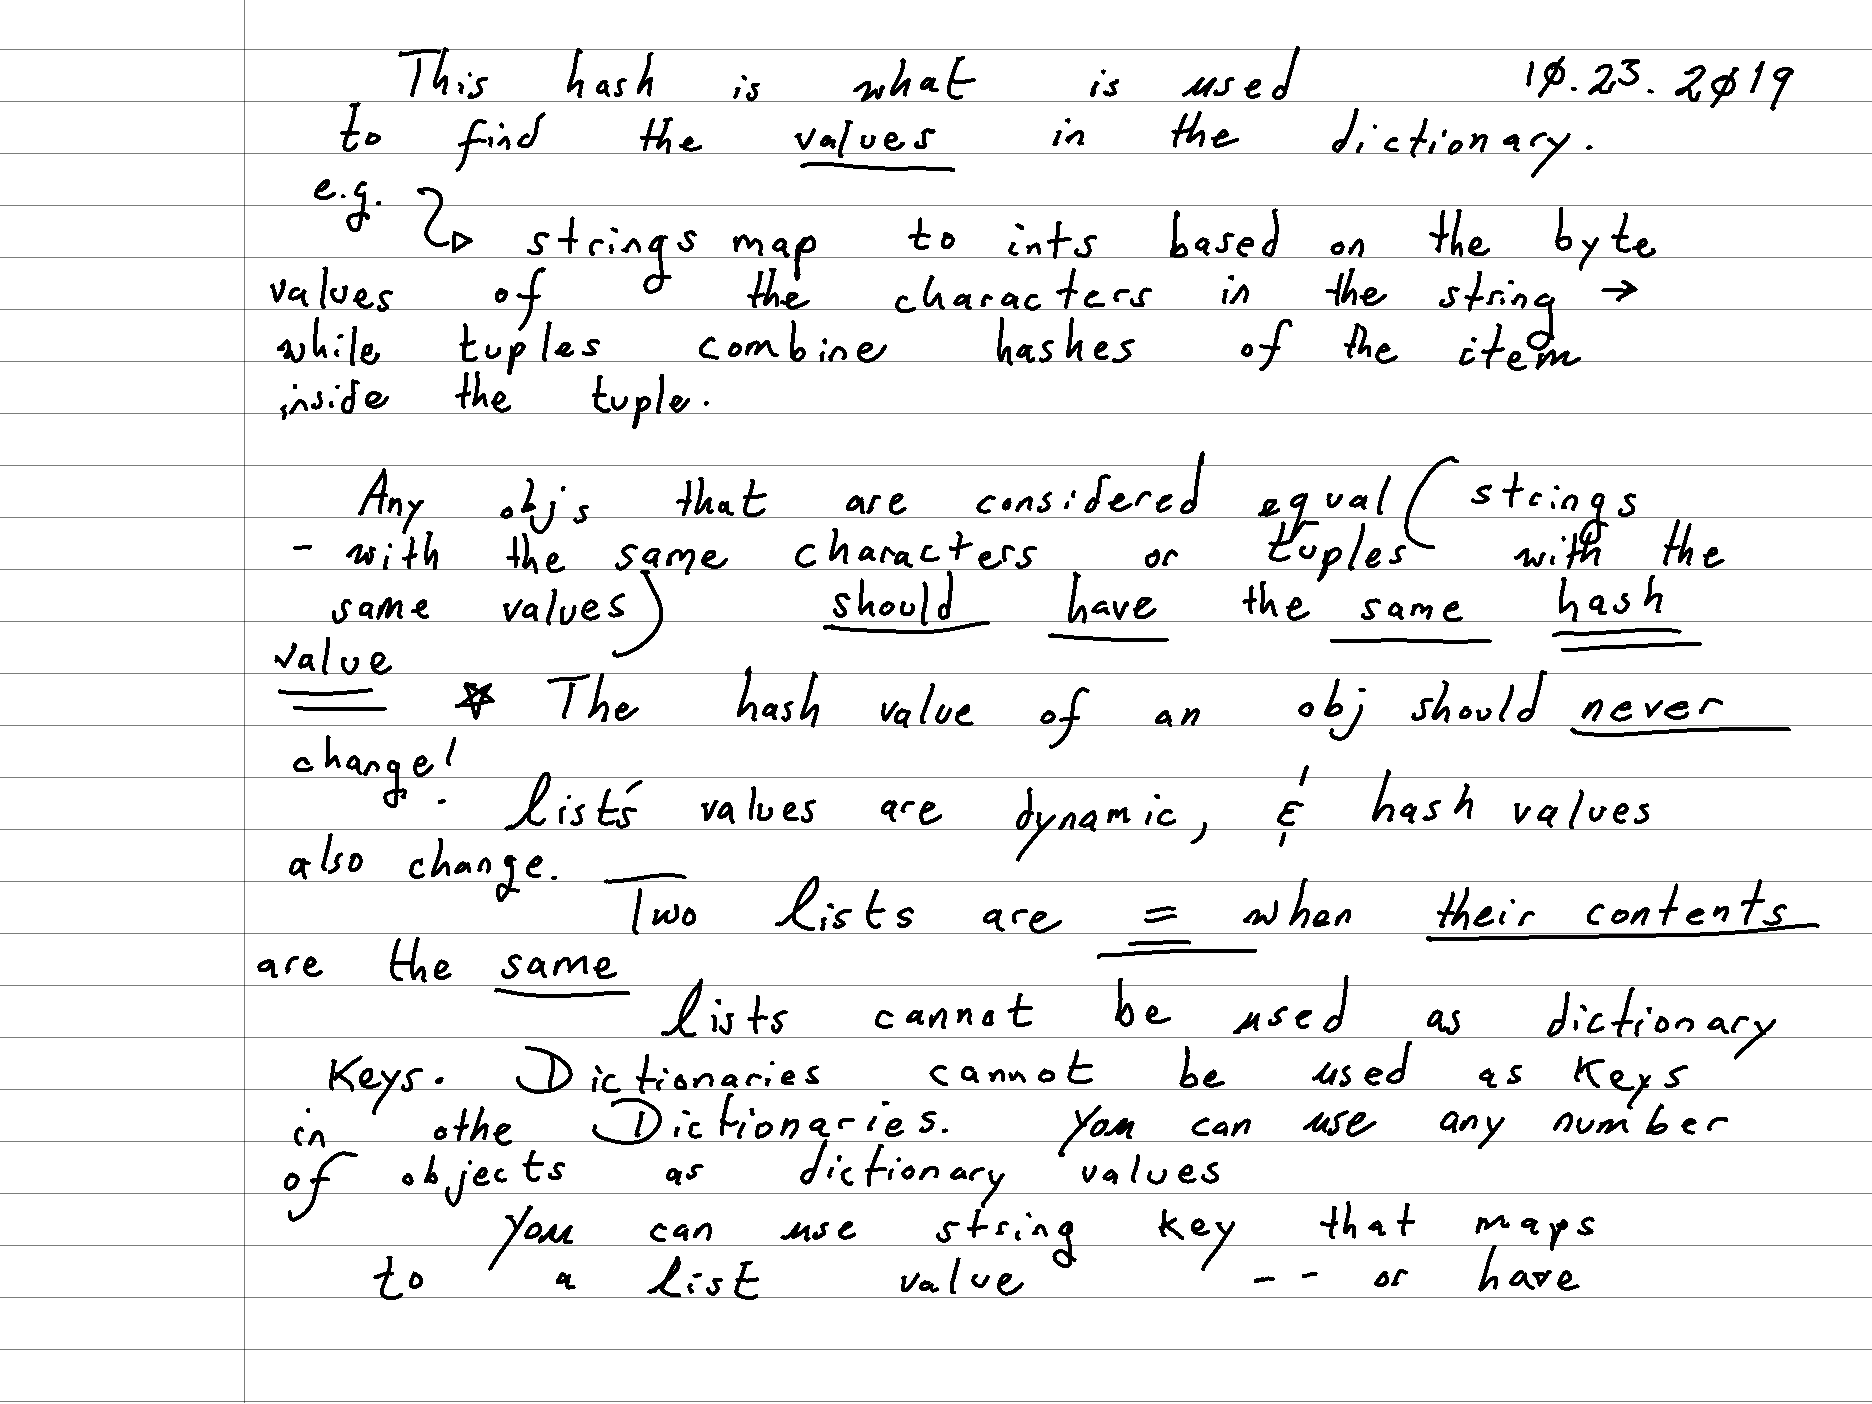 This hash is what is used 10.23.2019
to find the values in the dictionary.
e.g.
strings map to ints based on the byte
values of the characters in the string →
while tuples combine hashes of the item
inside the tuple.
Any objs that are considered equal (strings
- with the same characters or tuples with the
same values) should have the same hash
value ☆ The hash value of an obj should never
change!
list's values are dynamic, & hash values
also change.
Two lists are = when their contents
are the same
lists cannot be used as dictionary
Keys. Dictionaries cannot be used as Keys
in othe Dictionaries. You can use any number
of objects as dictionary values
You can use string key that maps
to a list value -- or have